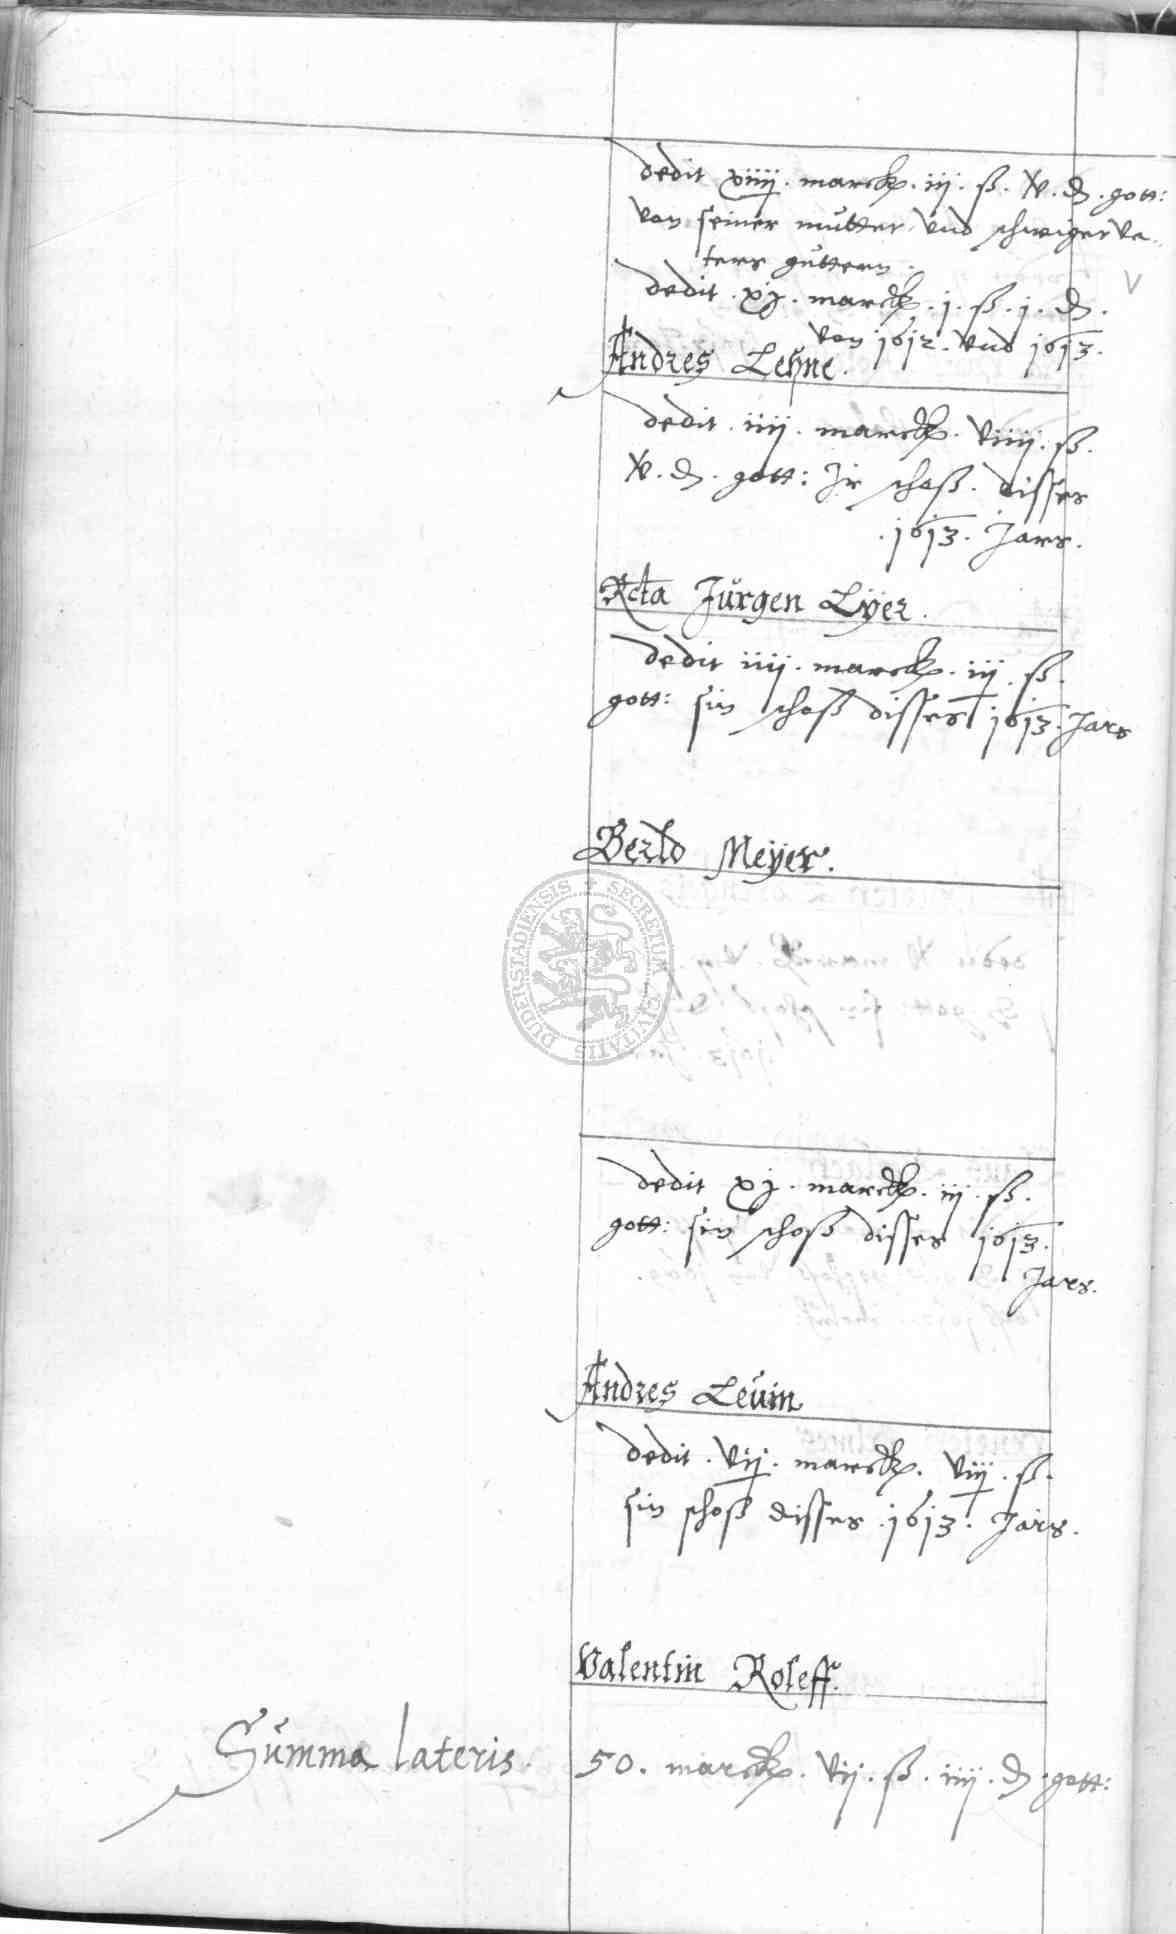 dedit xiiij. marck. iij. ß. x. d. gott:
von seiner mutter vnd schwigerva-
ters guttern.
dedit. xj. marck. j. ß. j. d.
von 1612. vnd 1613.
Andres Lehne.
dedit. iiij. marck. viiij. ß.
x. d. gott: Jr schoß. disses
.1613. Jars.
Rcta Jürgen Lyer.
dedit iiij. marck. iij. ß.
gott: sin schoß disses 1613. Jars
Berld Meyer.
SECRETUM CIVITATIS DUDERSTADIENSIS
dedit xj. marck. iij. ß.
gott: sin schoß disses 1613.
Jars.
Andres Leuin
dedit. vij. marck. viij. ß.
sin schoß disses .1613. Jars.
Valentin Roleff.
Summa lateris. 50. marck. vij. ß. iiij. d. gott: